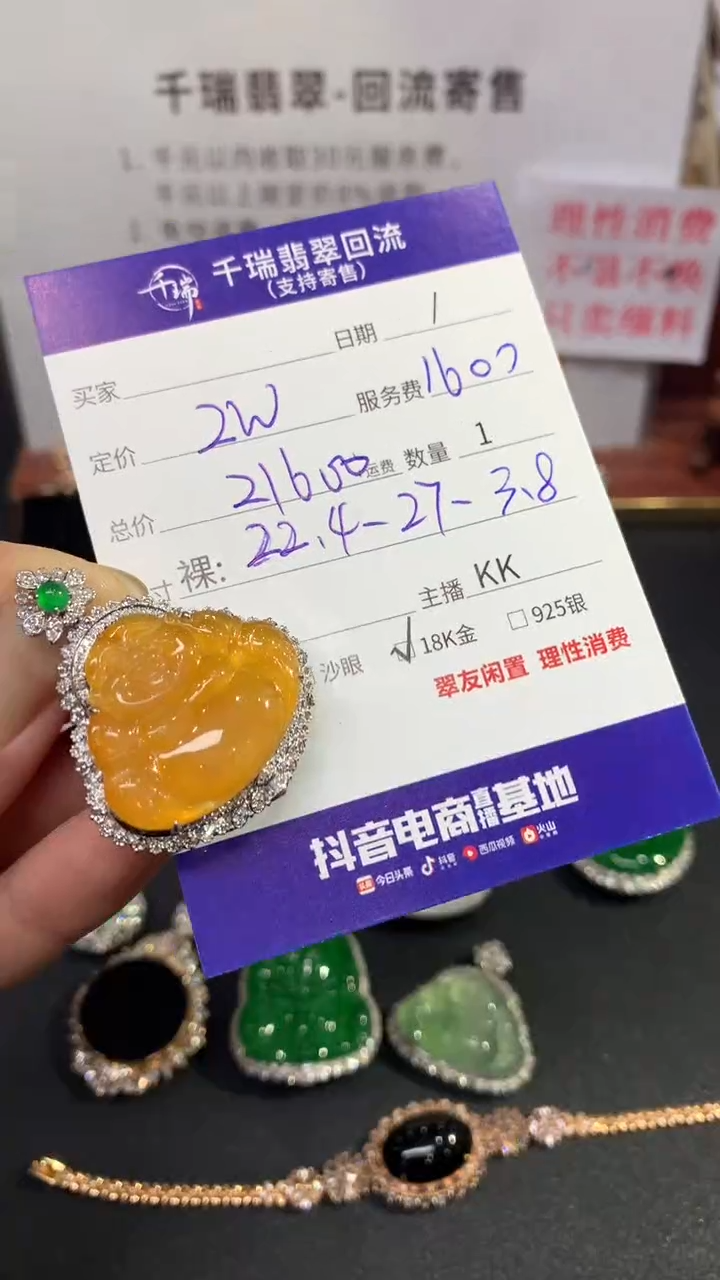 千瑞翡翠-回流寄售
1. 千元以内收取30元服务费，
理性消费
不退不换
千瑞
千瑞翡翠回流
(支持寄售)
买家 日期 /
定价 2W 服务费 1600
总价 21600 运费 数量 1
寸 裸: 22.4-27-3.8
主播 KK
沙眼 √ 18K金 □ 925银
翠友闲置 理性消费
抖音电商直播基地
今日头条 抖音 西瓜视频 火山